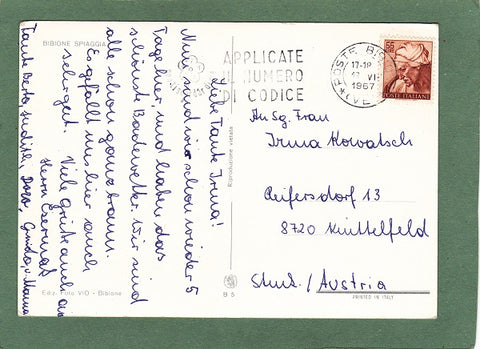 BIBIONE SPIAGGIA
Liebe Tante Irma!
Nun sind wir schon wieder 5
Tage hier, und haben das
schönste Badewetter. Wir sind
alle schon ganz braun.
Es gefällt uns hier auch
sehr gut. Viele Grüße auch an
Herrn
Tante Berta, Judith, Guido, u. Mama
Ediz. Foto VIO - Bibione
Riproduzione vietata
B 5
APPLICATE
IL NUMERO
DI CODICE
POSTE
17-18
VI
1967
(VE)
POSTE ITALIANE
An Sg. Frau
Irma Kowatsch
Reifersdorf 13
8720 Knittelfeld
Stmk. / Austria
PRINTED IN ITALY